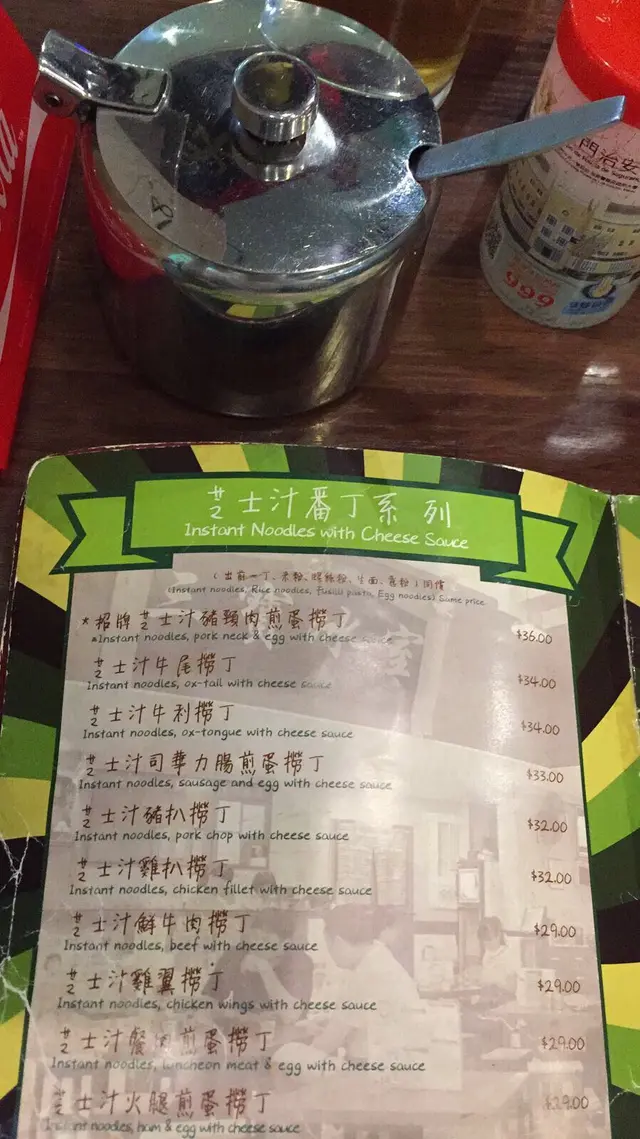 門治安
999
芝士汁番丁系列
Instant Noodles with Cheese Sauce
(出前一丁、米粉、螺絲粉、生面、意粉)同價
(Instant noodles, Rice noodles, Fusilli pasta, Egg noodles) Same price
*招牌芝士汁豬頸肉煎蛋撈丁
*Instant noodles, pork neck & egg with cheese sauce $36.00
芝士汁牛尾撈丁
Instant noodles, ox-tail with cheese sauce $34.00
芝士汁牛利撈丁
Instant noodles, ox-tongue with cheese sauce $34.00
芝士汁司華力腸煎蛋撈丁
Instant noodles, sausage and egg with cheese sauce $33.00
芝士汁豬扒撈丁
Instant noodles, pork chop with cheese sauce $32.00
芝士汁雞扒撈丁
Instant noodles, chicken fillet with cheese sauce $32.00
芝士汁鮮牛肉撈丁
Instant noodles, beef with cheese sauce $29.00
芝士汁雞翼撈丁
Instant noodles, chicken wings with cheese sauce $29.00
芝士汁餐肉煎蛋撈丁
Instant noodles, luncheon meat & egg with cheese sauce $29.00
芝士汁火腿煎蛋撈丁
Instant noodles, ham & egg with cheese sauce $29.00